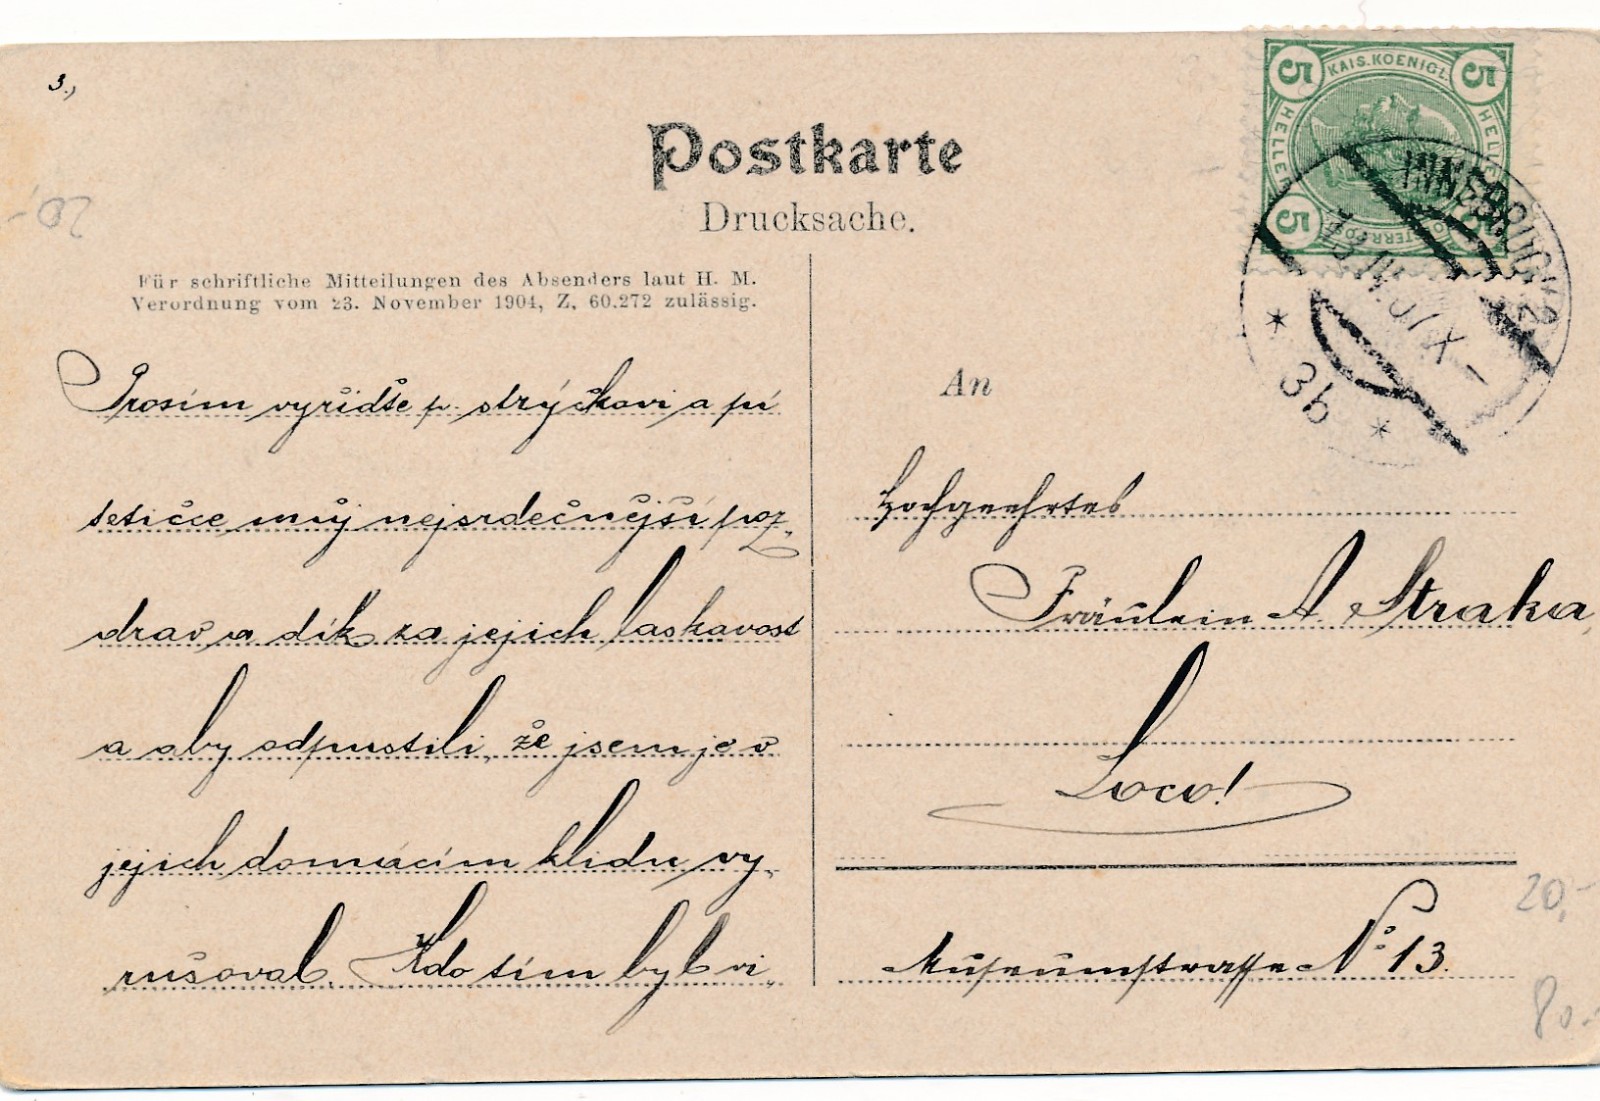 3.,
Postkarte
Drucksache.
Für schriftliche Mitteilungen des Absenders laut H. M.
Verordnung vom 23. November 1904, Z. 60.272 zulässig.
Prosím vyřiďte p. strýčkovi a pí
tetičce můj nejsrdečnější poz-
drav a dík za jejich laskavost
a aby odpustili, že jsem je v
jejich domácím klidu vy-
rušoval. Kdo tím byl vi-
KAIS. KOENIGL.
5 5
HELLER HELLER
5 5
INNSBRUCK 2
IV. 07 X -
* 3b *
An
Hochgeehrtes
Fräulein A. Straka,
Loco!
Museumstrasse No 13.
20,-
20,-
80.-